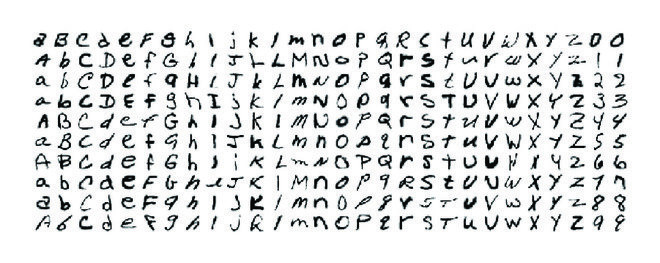 a B C d e F g h I j k l m n o P q R S t u V W X Y Z 0 0
A b C D e f G h i J L L M N o P q r s t u r w x Y z 1 1
a b C D e f q H i J k l m N O P q r S t U V w X Y z 2 2
a b c D E f g h I j k l m N O P q r S T U V W X Y Z 3 3
A B C d e f G h I J K l m N O P Q r S t u V W X Y Z 4 4
a B c d e f g h I J K L m n O p q r S t u V W X Y Z 5 5
A B C D e f G h I j K L m N O P Q r S t u U H X Y Z 6 6
a b C d e F G h i J K l M n o P q R S t U V W X Y Z 7 7
a b C d e F 9 h I J K l m n O P g r S T u v w x Y Z 8 8
A b C d e F g h I j k l m n o P q r S T u V w X Y Z 9 9